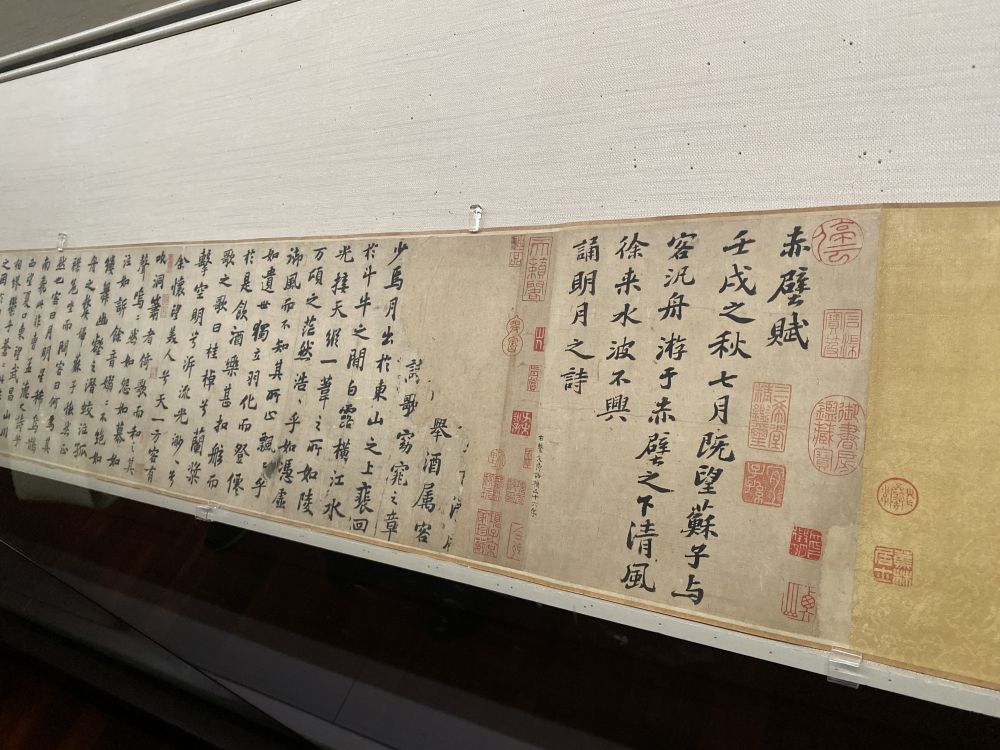 赤壁賦
壬戌之秋七月既望蘇子与
客汎舟游于赤壁之下清風
徐来水波不興
誦明月之詩
舉酒属客
詩歌窈窕之章
少焉月出於東山之上裴回
於斗牛之間白露横江水
光接天縱一葦之所如陵
万頃之茫然浩〻乎如憑虚
御風而不知其所止飄〻乎
如遺世獨立羽化而登僊
於是飲酒樂甚扣舷而
歌之歌曰桂棹兮蘭槳
擊空明兮泝流光渺〻兮
余懷望美人兮天一方客有
吹洞簫者倚歌而和之其
聲嗚〻然如怨如慕如
泣如訴餘音嫋〻不絶如
縷舞幽壑之潜蛟泣孤
舟之嫠婦蘇子愀然正
襟危坐而問客曰何為其
然也客曰月明星稀烏鵲
南飛此非曹孟德之詩乎
西望夏口東望武昌山川
天籟閣
御書房鑑藏寶
三希堂精鑑璽
宜子孫
蕉林居士